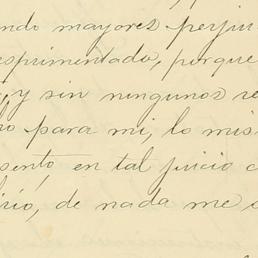 ndo mayores perjui
esprimentado, porque
, y sin ningunos re
ro para mi, lo mis
sento, en tal juicio c
irió, de nada me